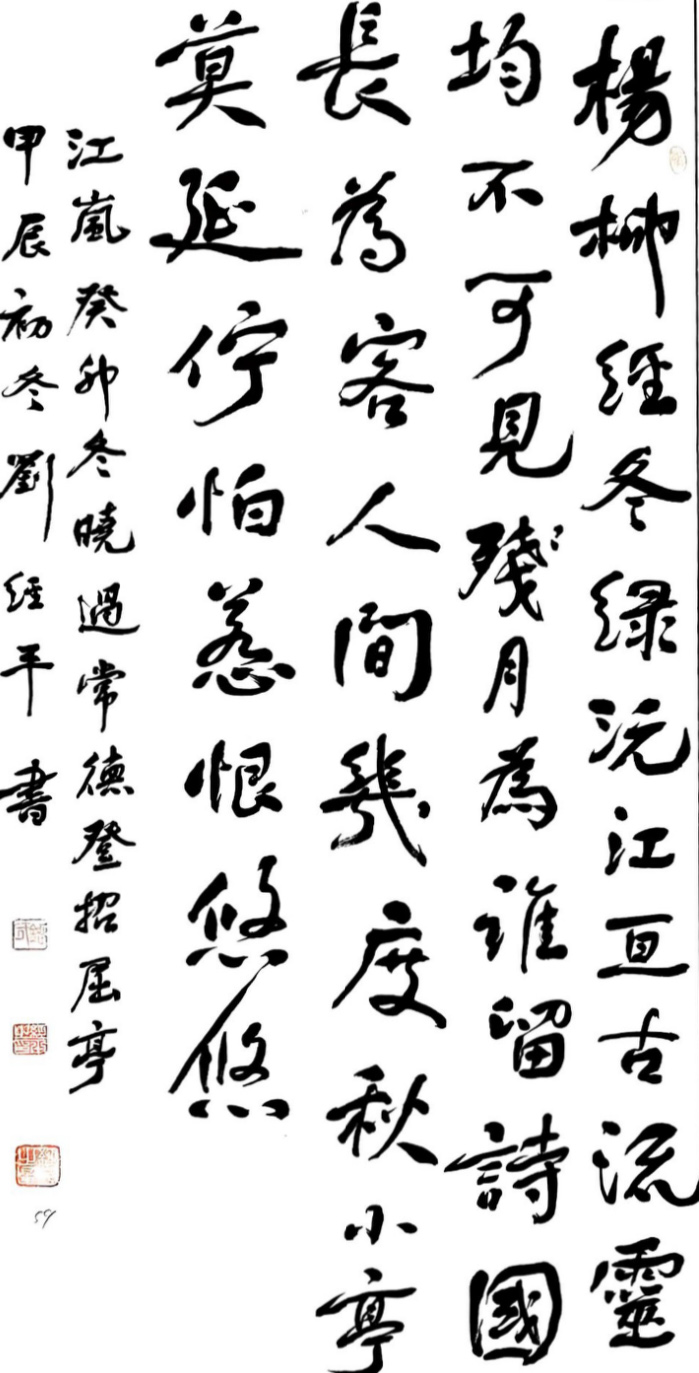 楊柳經冬緑沅江亘古流靈
均不可見殘月為誰留詩國
長為客人間幾度秋小亭
莫延佇怕惹恨悠悠
江嵐癸卯冬曉過常德登招屈亭
甲辰初冬劉經平書
59